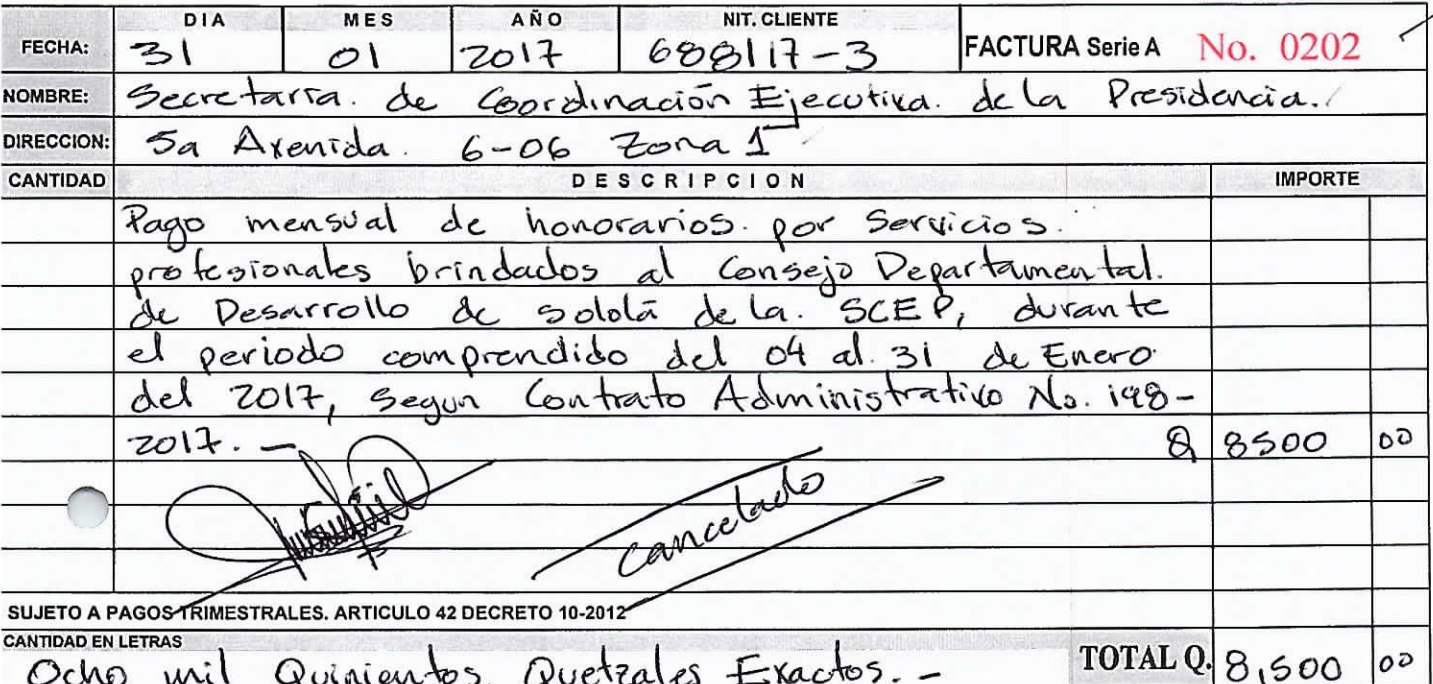 DIA MES AÑO NIT. CLIENTE
FECHA: 31 01 2017 688117-3 FACTURA Serie A No. 0202
NOMBRE: Secretaría. de Coordinación Ejecutiva. de la Presidencia.
DIRECCION: 5a Avenida. 6-06 Zona 1
CANTIDAD DESCRIPCION IMPORTE
Pago mensual de honorarios. por Servicios.
profesionales brindados al Consejo Departamental.
de Desarrollo de sololá de la. SCEP, durante
el periodo comprendido del 04 al. 31 de Enero
del 2017, Segun Contrato Administrativo No. 198-
2017. — Q 8500 00
cancelado
SUJETO A PAGOS TRIMESTRALES. ARTICULO 42 DECRETO 10-2012
CANTIDAD EN LETRAS
Ocho mil Quinientos Quetzales Exactos. - TOTAL Q. 8,500 00